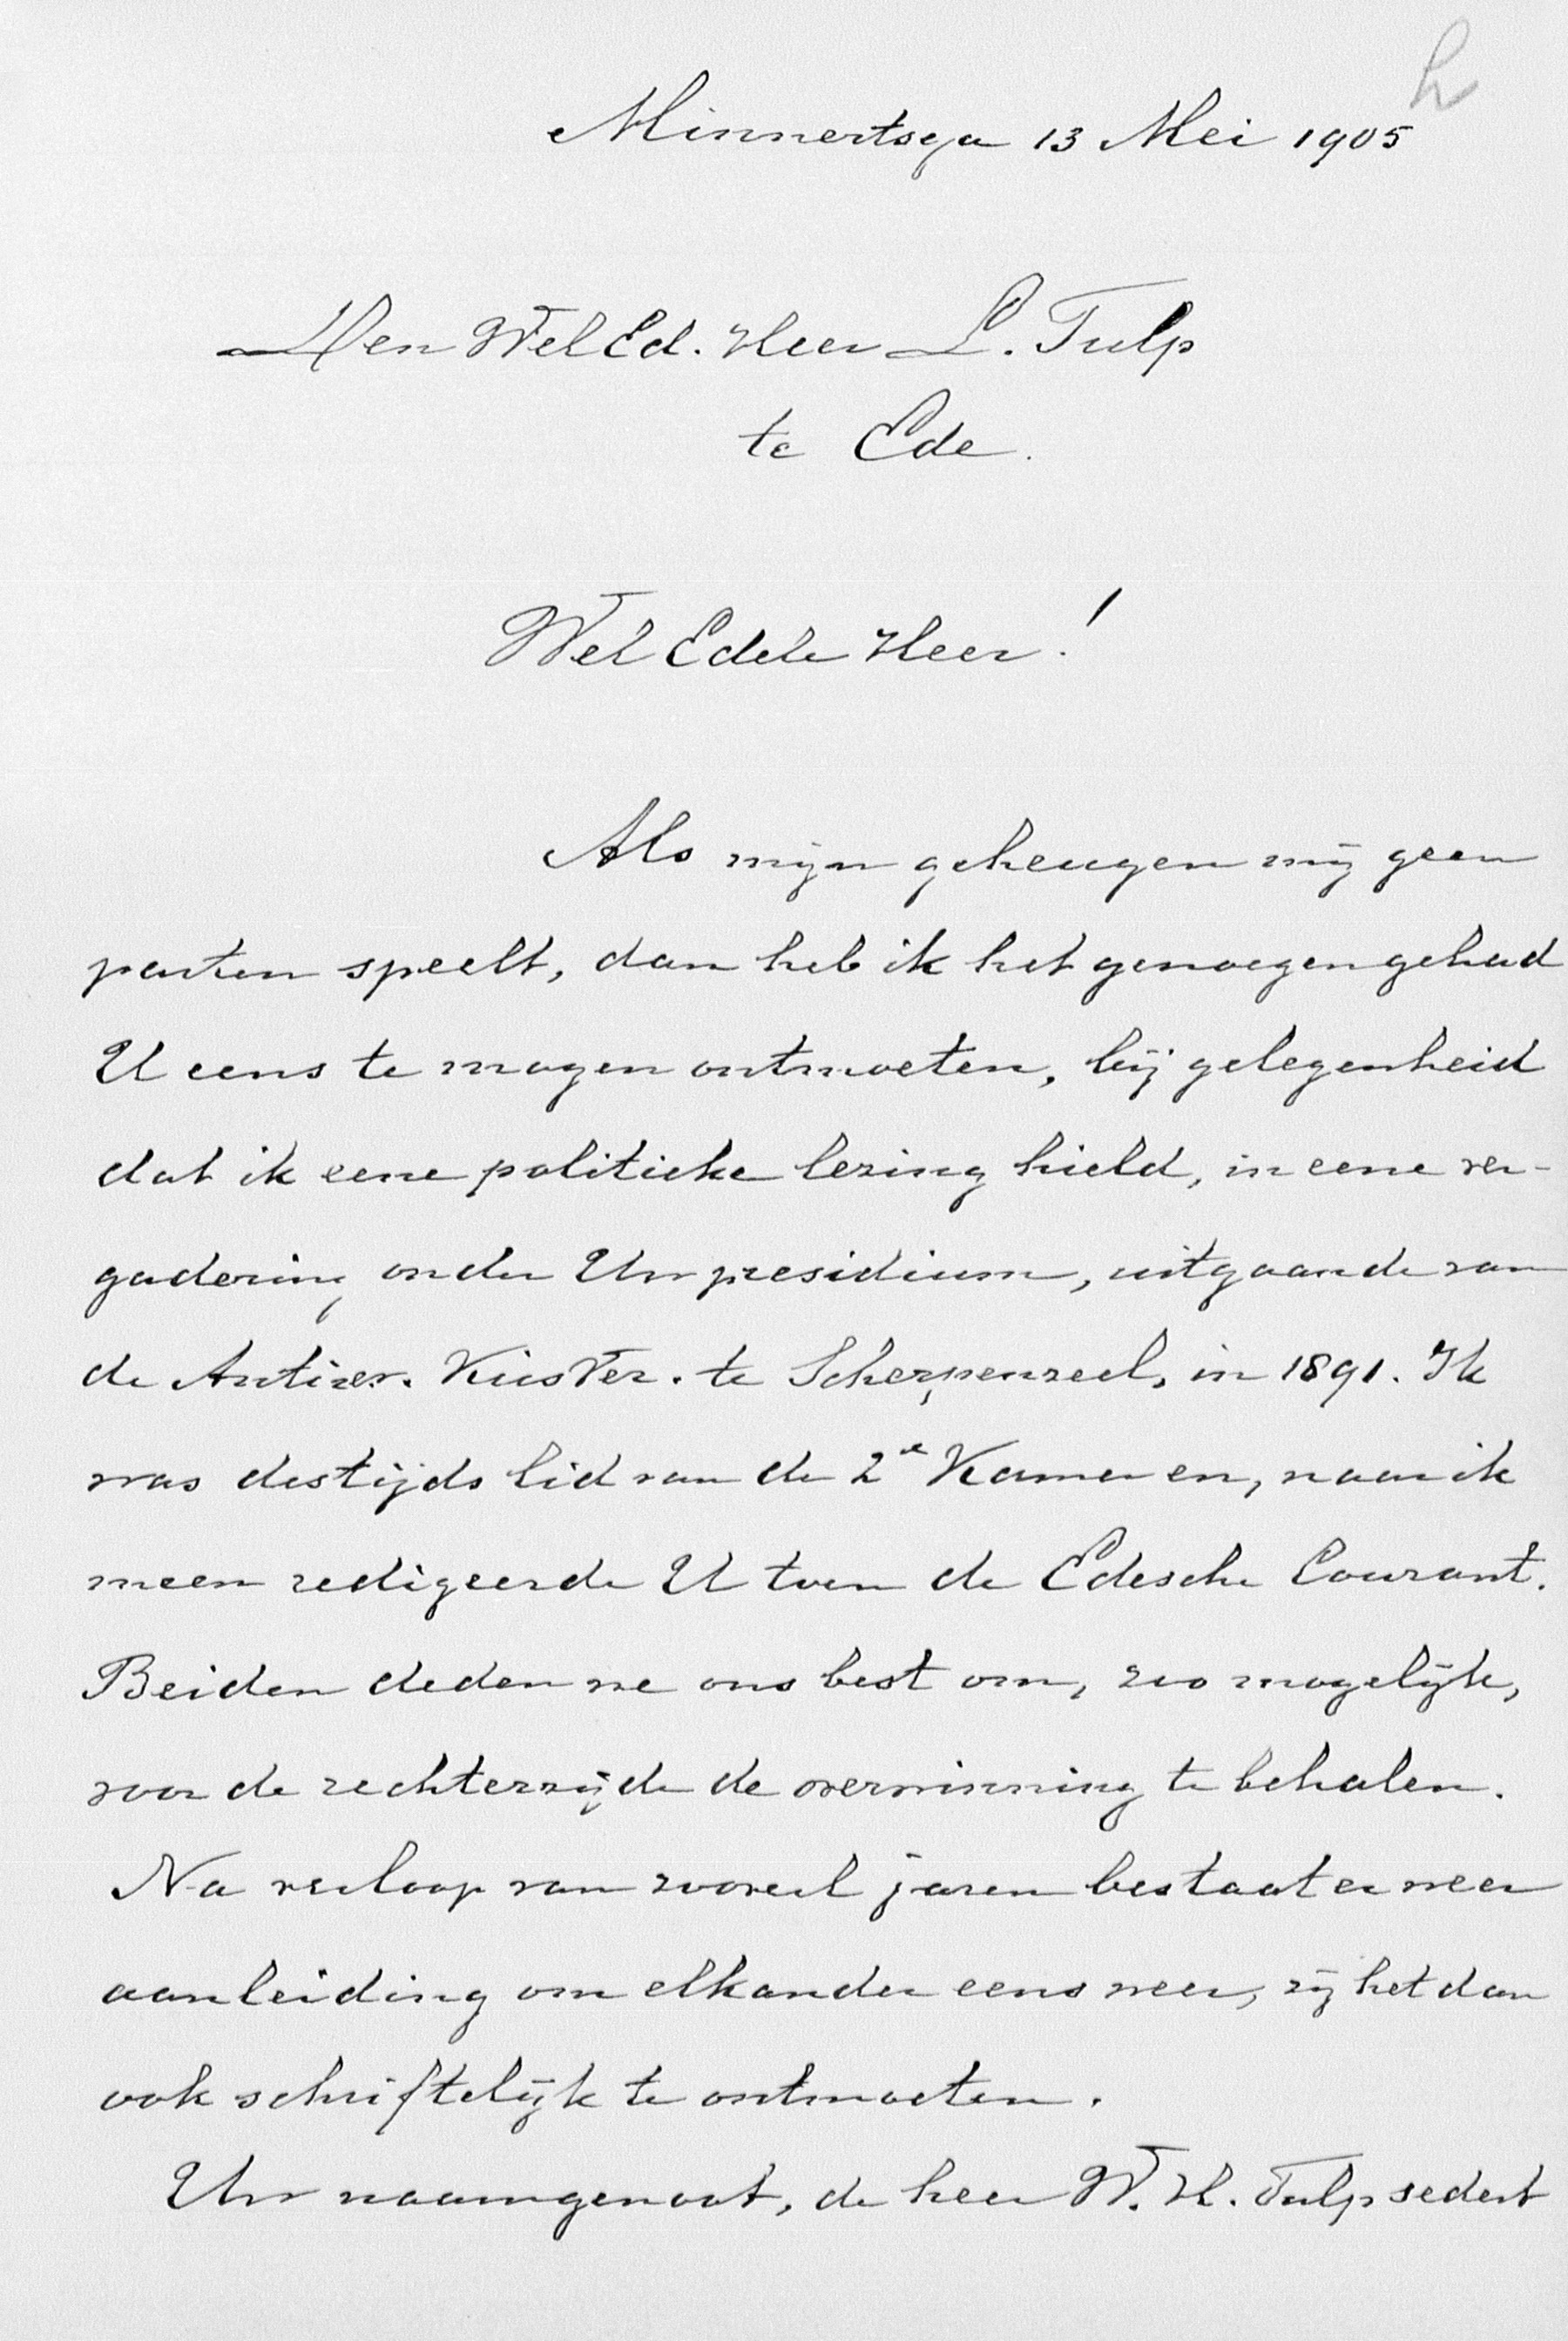 h
Minnertsga 13 Mei 1905
Den WelEd. Heer L. Tulp
te Ede.
Wel Edele Heer!
Als mijn geheugen mij geen
parten speelt, dan heb ik het genoegen gehad
U eens te mogen ontmoeten, bij gelegenheid
dat ik eene politieke lezing hield, in eene ver-
gadering onder Uw presidium, uitgaande van
de Antirev. KiesVer. te Scherpenzeel, in 1891. Ik
was destijds lid van de 2e Kamer en, naar ik
meen redigeerde U toen de Edesche Courant.
Beiden deden we ons best om, zoo mogelijk,
voor de rechterzijde de overwinning te behalen.
Na verloop van zooveel jaren bestaat er weer
aanleiding om elkander eens weer, zij het dan
ook schriftelijk te ontmoeten.
Uw naamgenoot, de heer W. H. Tulp sedert